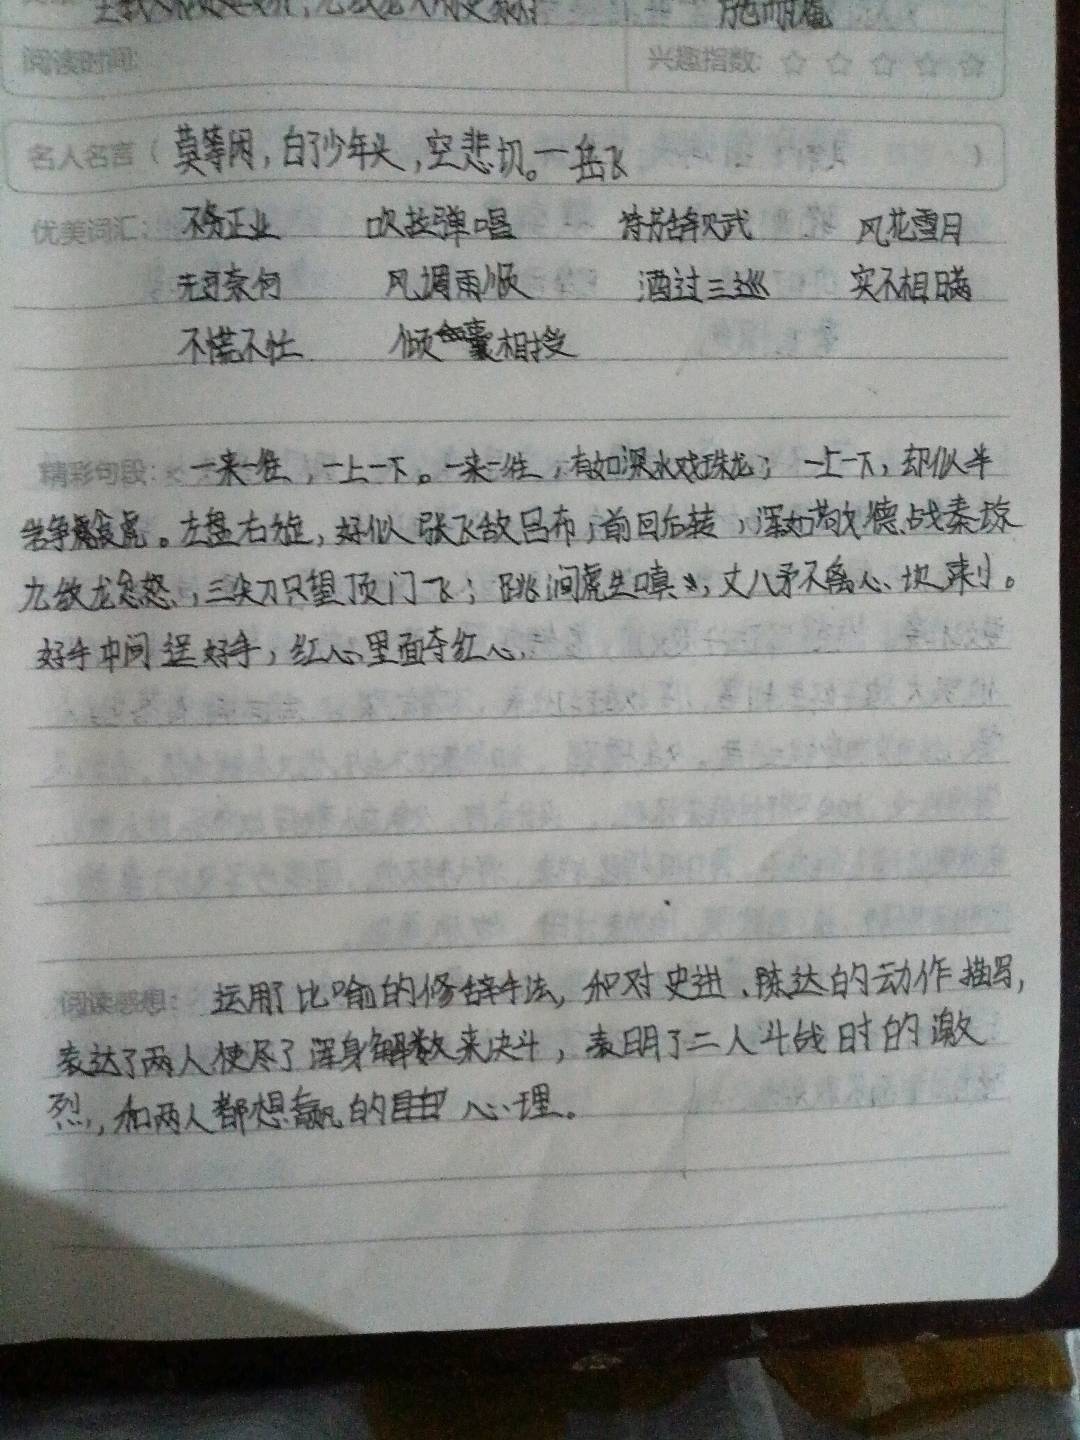 施耐庵
阅读时间: 兴趣指数: ☆ ☆ ☆ ☆ ☆
名人名言 ( 莫等闲，白了少年头，空悲切。一岳飞 )
优美词汇: 不务正业 吹弦弹唱 风花雪月
无可奈何 风调雨顺 酒过三巡 实不相瞒
不慌不忙 倾囊相授
精彩句段: 一来一往，一上一下。一来一往，有如深水戏珠龙；一上一下，却似半
岩争食虎。左盘右旋，好似张飞敌吕布；前回后转，浑如敬德战秦琼
九纹龙忿怒，三尖刀只望顶门飞；跳涧虎生嗔，丈八矛不离心坎刺。
好手中间逞好手，红心里面夺红心。
阅读感想: 运用了比喻的修辞手法，和对史进、陈达的动作描写，
表达了两人使尽了浑身解数来决斗，表明了二人斗战时的激
烈，和两人都想赢的心理。